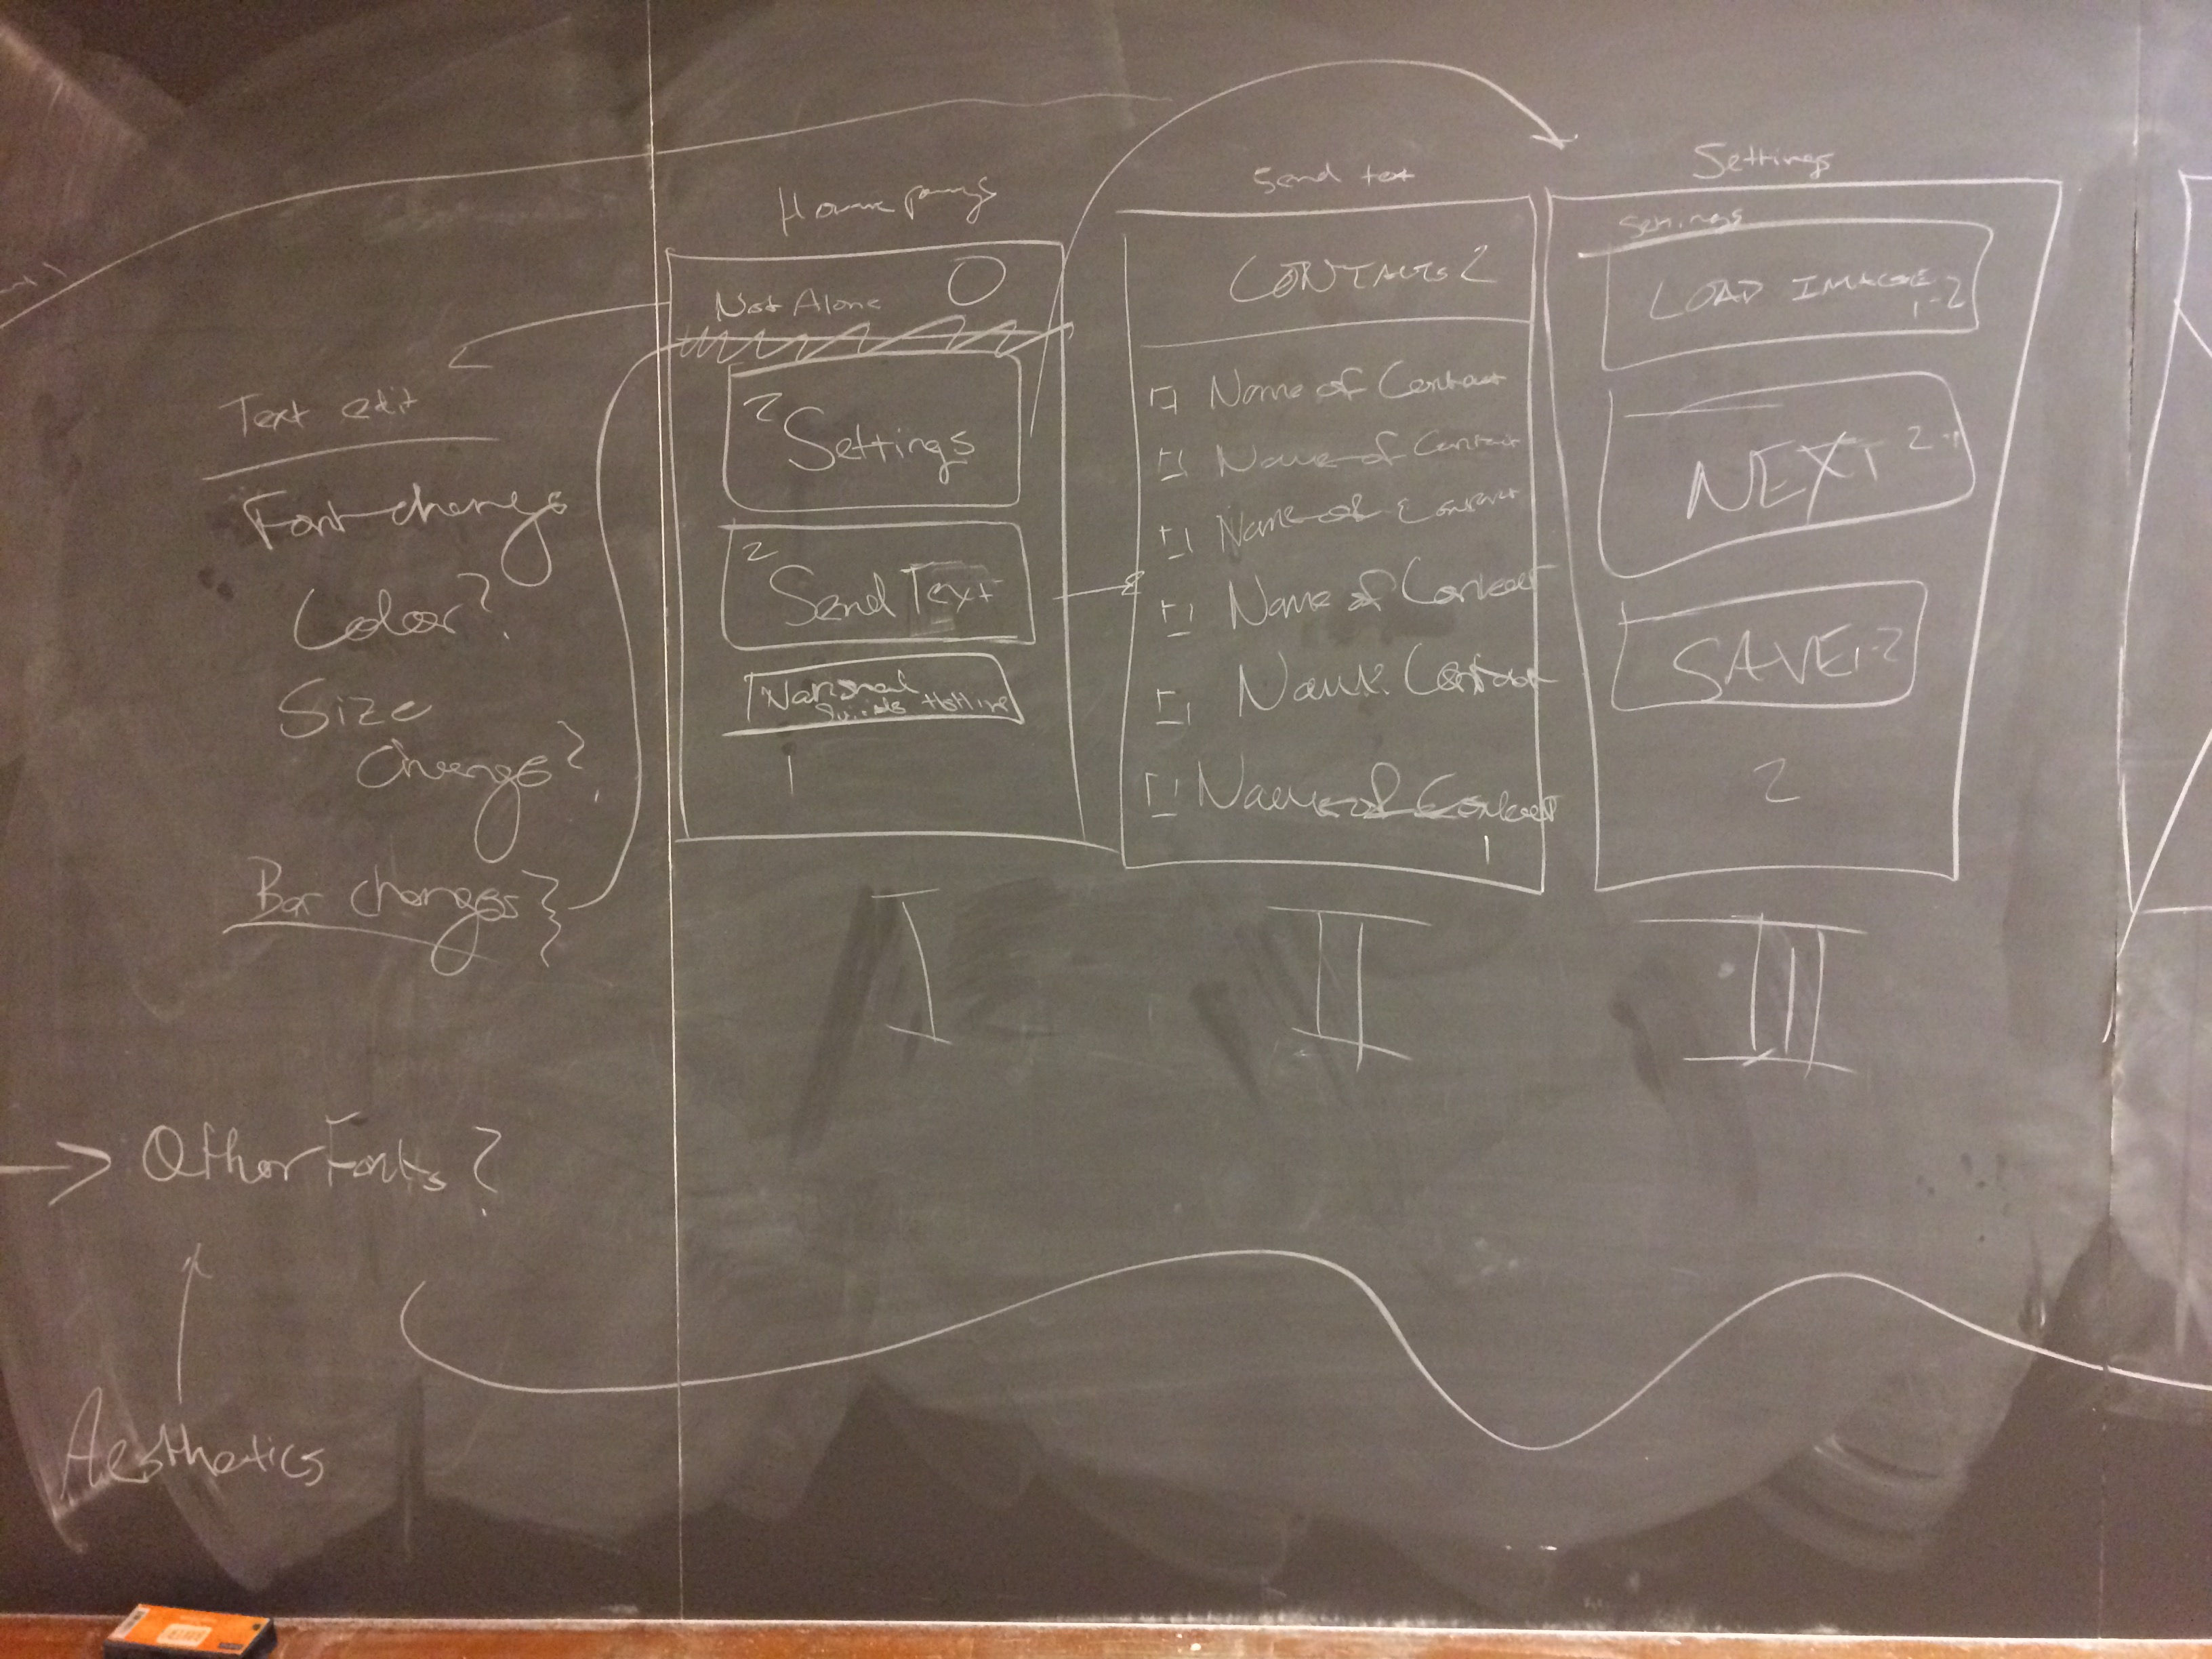 Text edit
Font change
Color?
Size
change?
Bar changes
Other Fonts?
Aesthetics
Home page
Not Alone
2
Settings
2
Send Text
National
Suicide Hotline
1
I
Send text
CONTACTS 2
Name of Contact
Name of Contact
Name of Contact
Name of Contact
Name Contact
Name of Contact
1
II
Settings
Settings
LOAD IMAGE
1-2
NEXT 2-1
SAVE 1-2
2
III